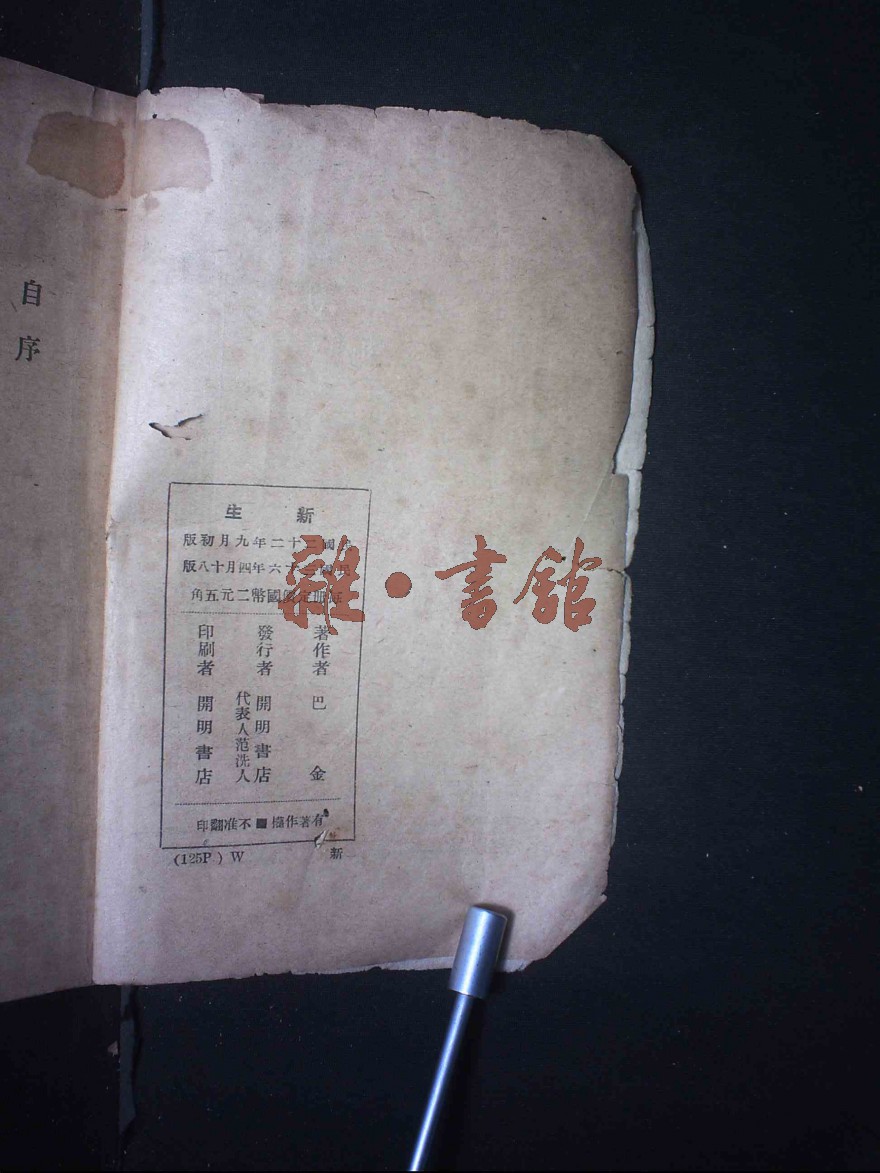 新生
民國二十二年九月初版
民國三十六年四月十八版
每冊定價國幣二元五角
著作者 巴金
發行者 開明書店
代表人范洗人
印刷者 開明書店
有著作權■不准翻印
新
(125P.) W
自序
雜·書館